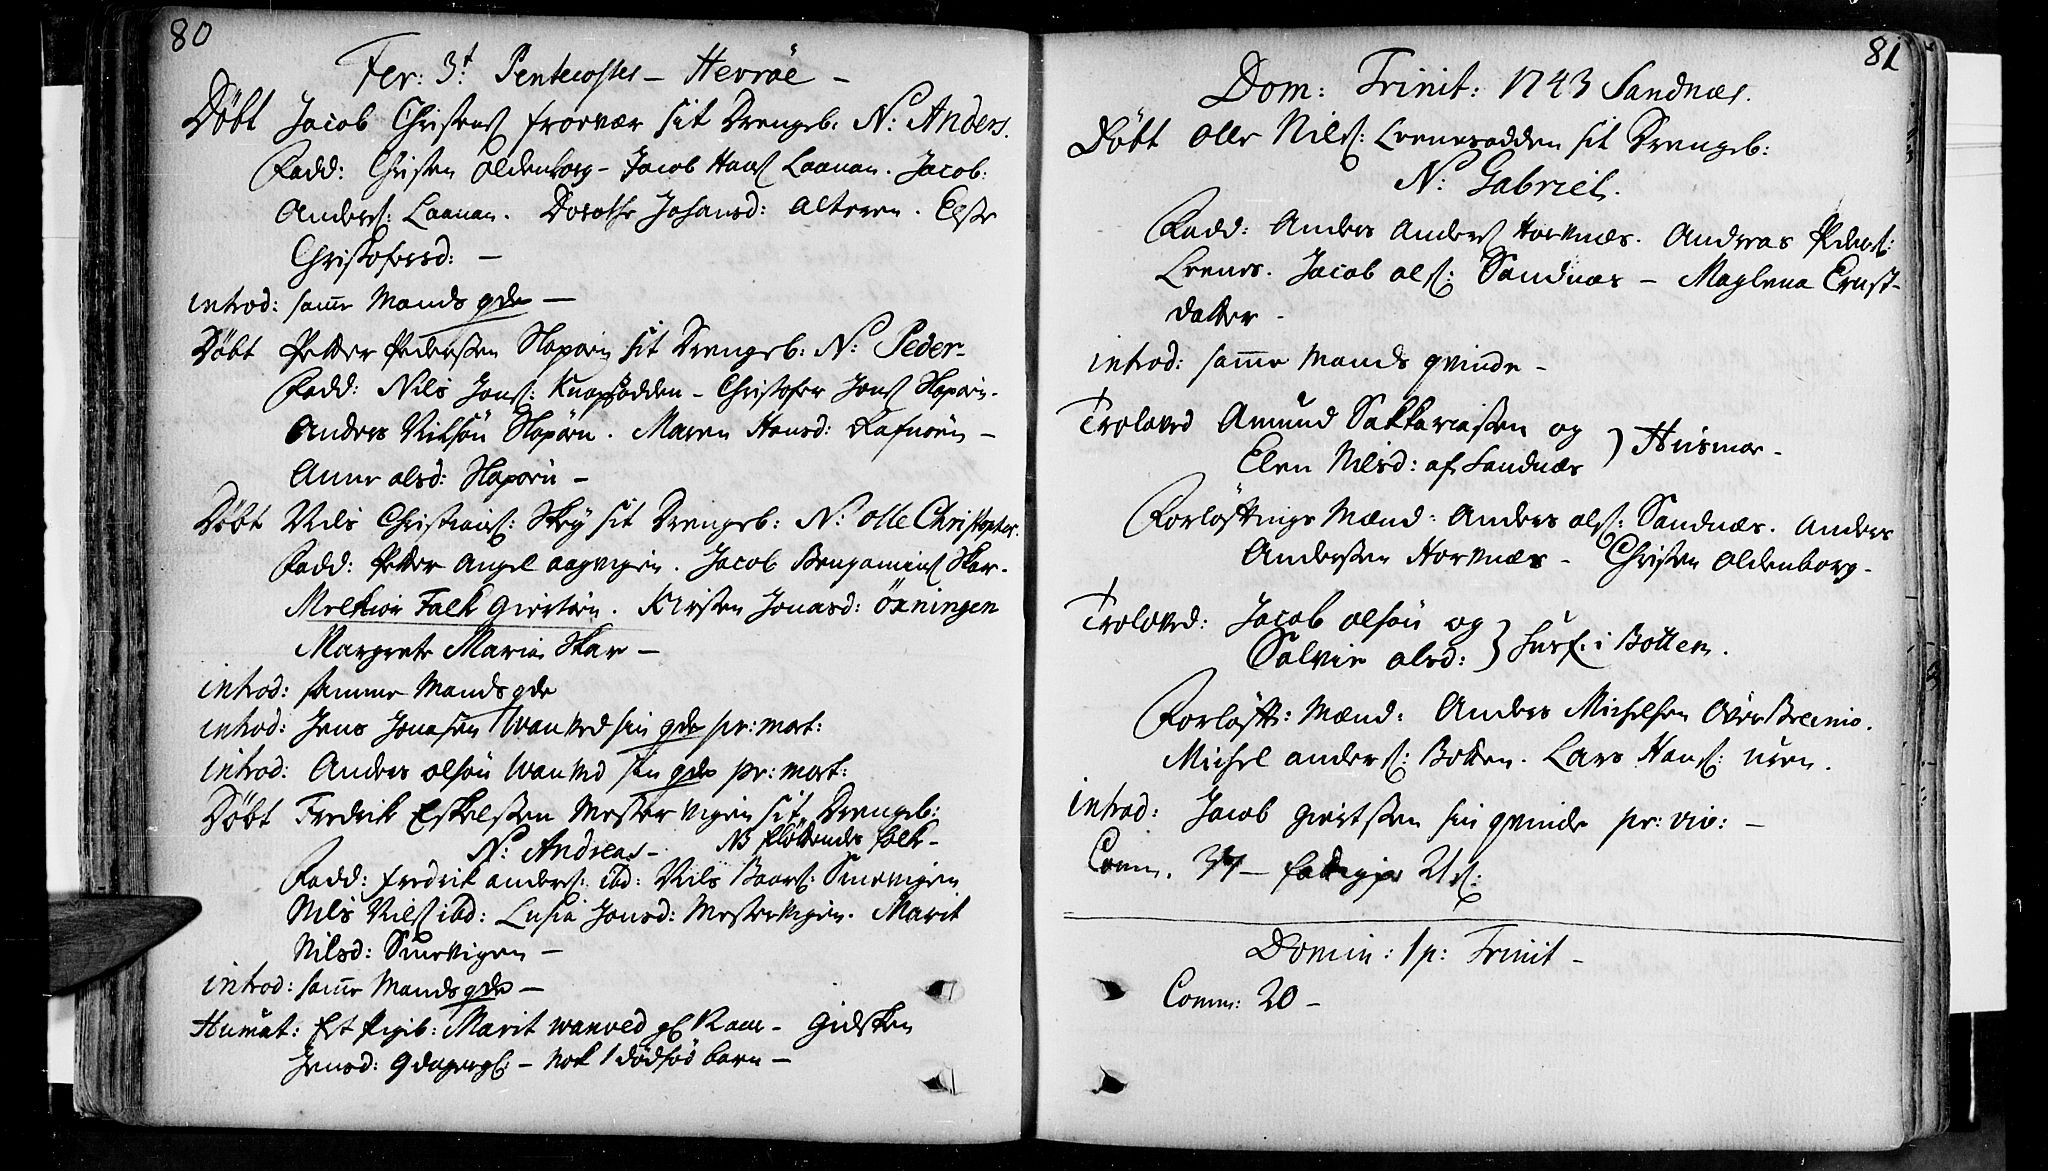 80
Fer: 3t Pentecostes - Hevröe -
Döbt Jacob Christens sit Drengeb: N: Anders.
Fadd: Christen Oldenborg - Jacob Hans Laanan. Jacob:
Anders: Laanan. Dorothe Johansd: Alteren. Else
Christofersd: -
introd: samme Mands qde -
Döbt Petter Pederssen Haporn sit Drengeb: N: Peder -
Fadd: Nils Jons: - Christofer Jons Haporn.
Anders Nilsön Haporn. Maren Hansd: -
Anne olsd: Haporn -
Döbt Nils Christians: sit Drengeb: N: Olle Christopher.
Fadd: Petter Angel aagvigen. Jacob Benjamins Skar.
Melkior Falk. Kirsten Jonasd: öxningen
Margrete Maria Skar -
introd: samme Mands qde
introd: Jens Jonesen Wanved sin qde pr: mort:
introd: Anders olsön Wanved sin qde pr: mort:
Döbt Fredrik Eskelssen Mestervigen sit Drengeb:
N: Andreas - NB flöttendes folk -
Fadd: fredrik anders: ibd: Nils Baars: Smevigen
Nils Nils ibd: Lusia Jonsd: Mestervigen. Marit
Nilsd: Smevigen -
introd: samme Mands qde -
Humat: Est Marit wanved - Gidsken
Jensd: 9 dage gl: - nok 1 dödföd barn -
81
Dom: Trinit: 1743 Sandnæs.
Döbt Olle Nils: Leenesodden sit Drengeb:
N: Gabriel.
Fadd: Anders Anders Horvnæs. Andreas Peders:
Leenes. Jacob ols: Sandnæs - Maglena Ernst-
datter -
introd: samme Mands qvinde -
Troloved Amund Sakkariassen og
Elen Nilsd: af Sandnæs } Husmæ -
Forlöftnings Mænd: Anders ols: Sandnæs. Anders
Anderssen Horvnæs - Christen Oldenborg -
Troloved: Jacob olsön og
Salvie olsd: } i Botten.
Forlöft: Mænd: Anders Michelsen
Michel anders: Botten. Lars Hans: uren.
introd: Jacob giertssen sin qvinde pr: viv: -
Comm. 37 - 21 s:
Domin: 1 p: Trinit -
Comm: 20 -